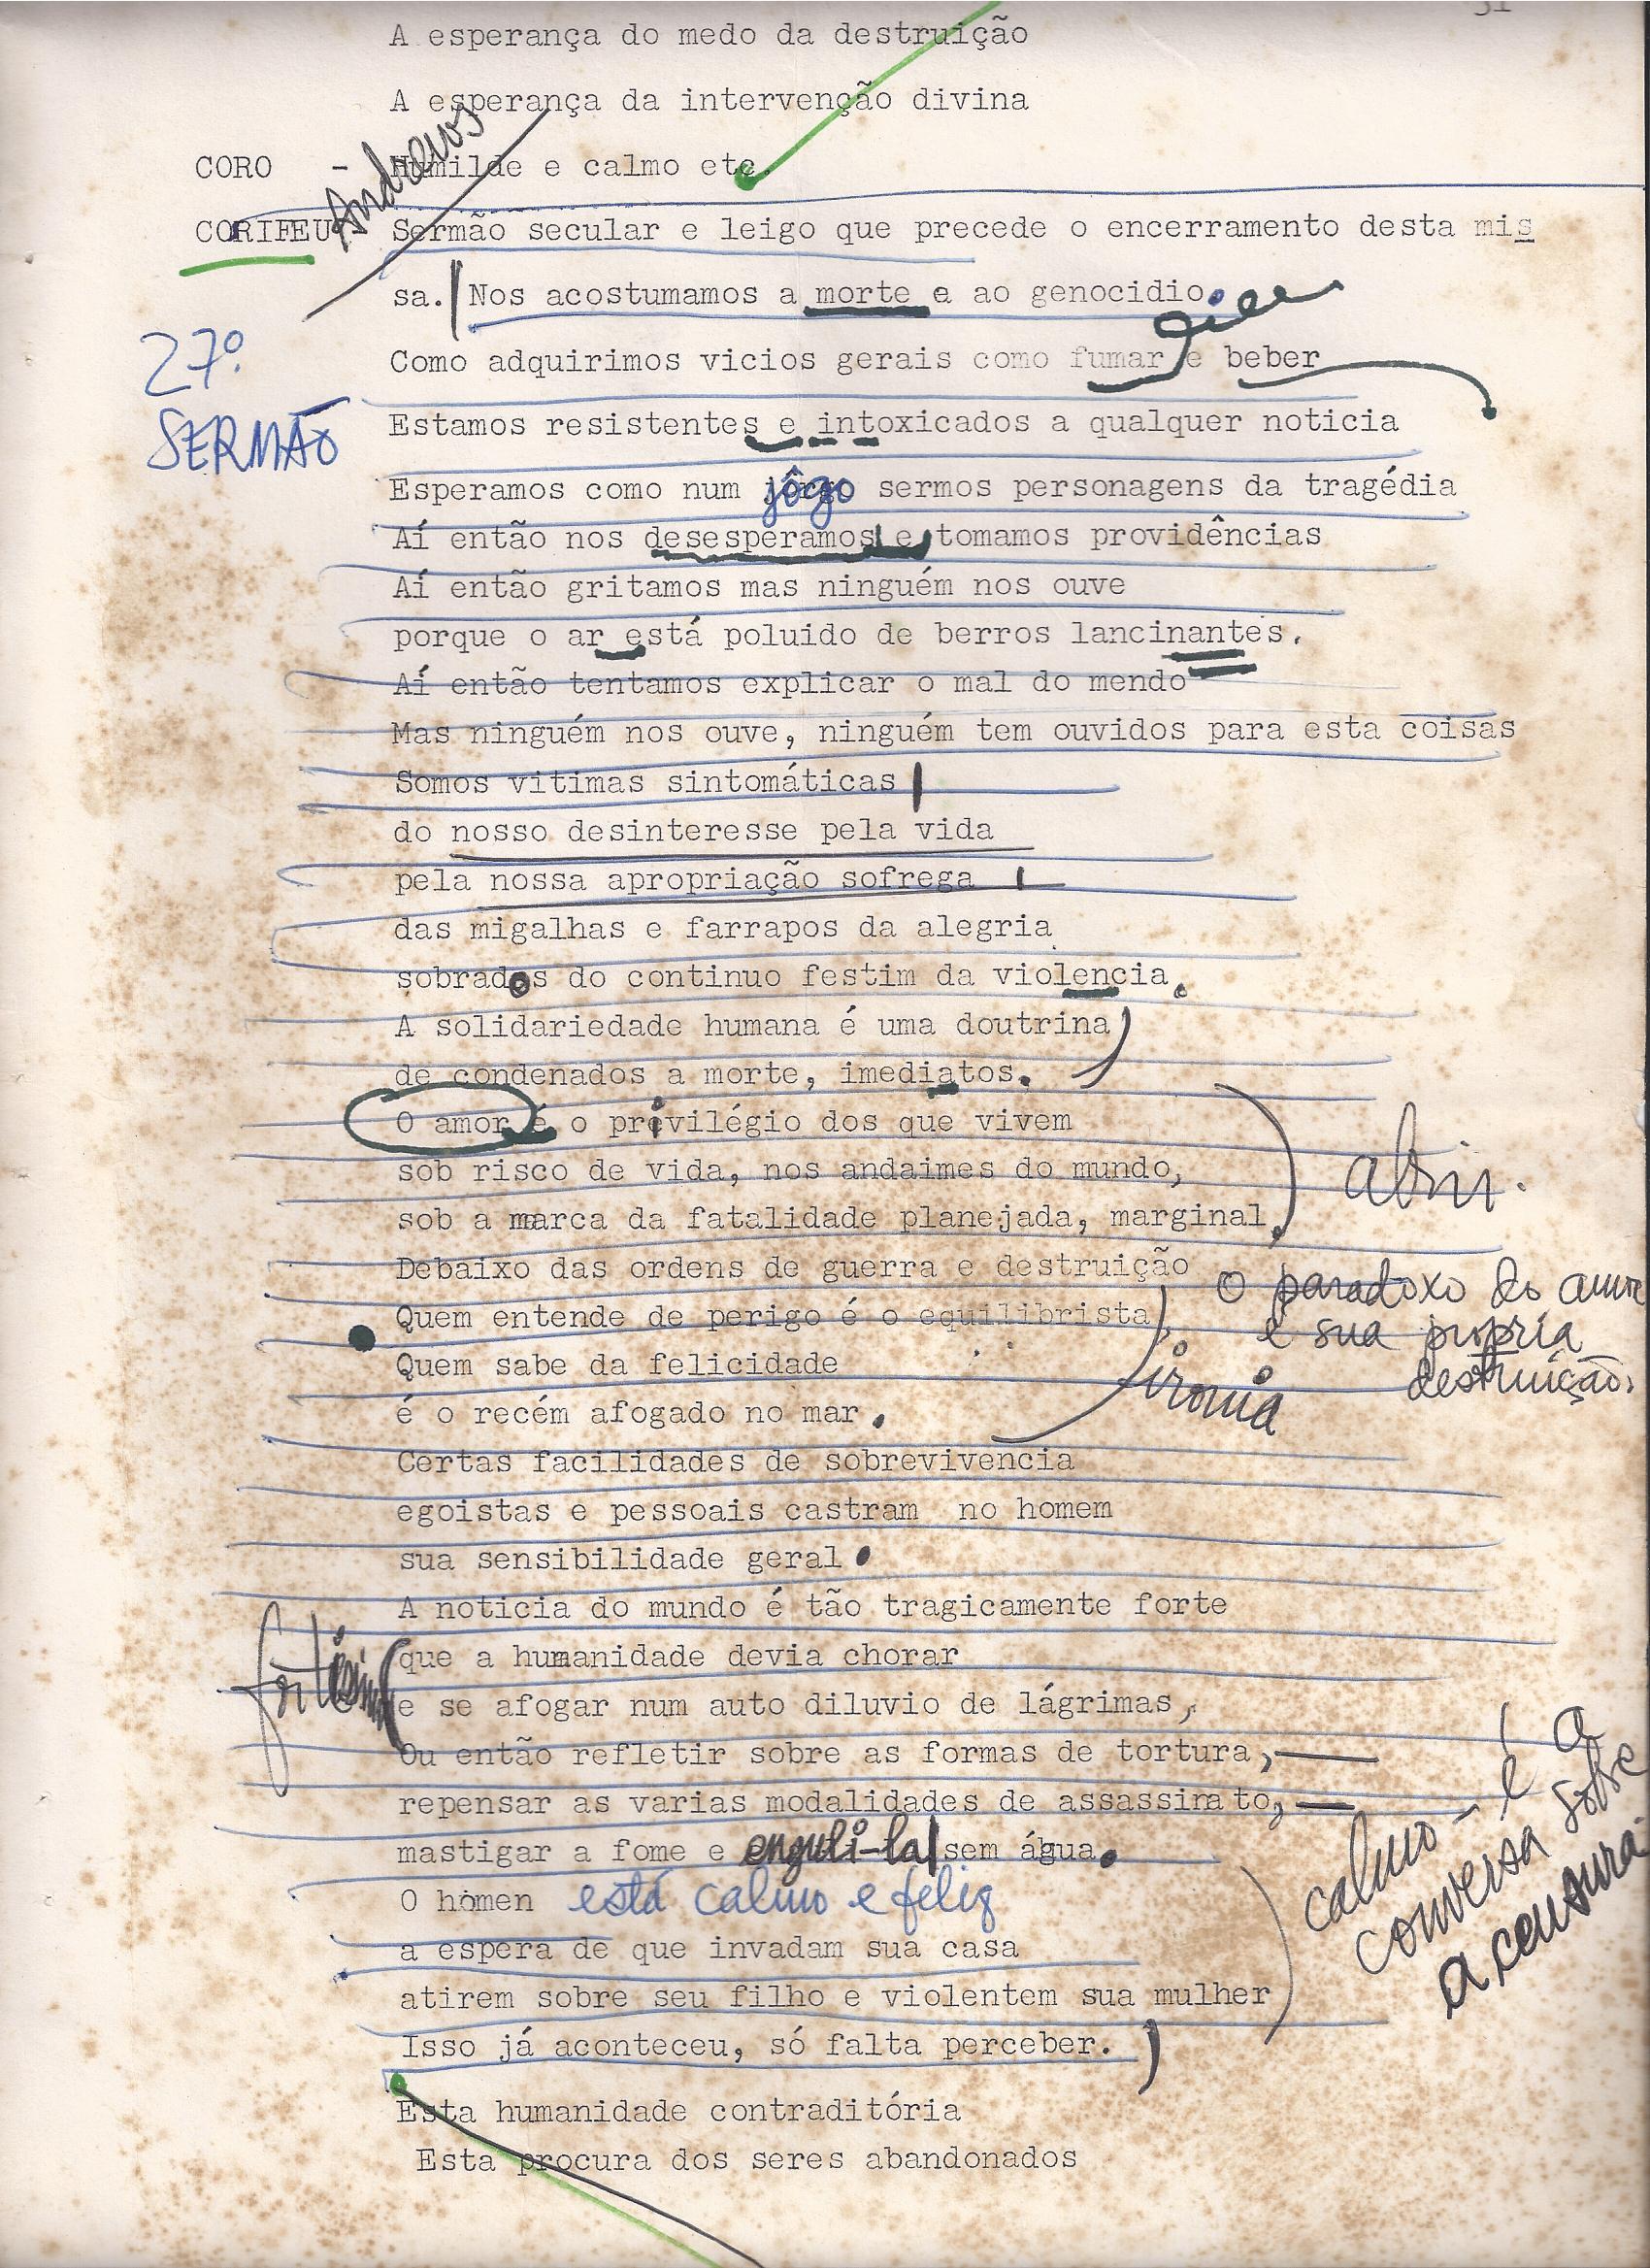 A esperança do medo da destruição
A esperança da intervenção divina
CORO - Humilde e calmo etc.
Andrews
CORIFEU - Sermão secular e leigo que precede o encerramento desta mis
sa. Nos acostumamos a morte e ao genocidio.
27º
SERMÃO
Como adquirimos vicios gerais como fumar e beber
Estamos resistentes e intoxicados a qualquer noticia
Esperamos como num jôgo sermos personagens da tragédia
Aí então nos desesperamos e tomamos providências
Aí então gritamos mas ninguém nos ouve
porque o ar está poluido de berros lancinantes.
Aí então tentamos explicar o mal do mendo
Mas ninguém nos ouve, ninguém tem ouvidos para esta coisas
Somos vitimas sintomáticas
do nosso desinteresse pela vida
pela nossa apropriação sofrega
das migalhas e farrapos da alegria
sobrados do continuo festim da violencia.
A solidariedade humana é uma doutrina
de condenados a morte, imediatos.
O amor é o privilégio dos que vivem
sob risco de vida, nos andaimes do mundo,
sob a marca da fatalidade planejada, marginal,
abrir.
Debaixo das ordens de guerra e destruição
o paradoxo do amor
e sua propria
destruição,
Quem entende de perigo é o equilibrista,
Quem sabe da felicidade
é o recém afogado no mar.
ironia
Certas facilidades de sobrevivencia
egoistas e pessoais castram no homem
sua sensibilidade geral.
A noticia do mundo é tão tragicamente forte
que a humanidade devia chorar
e se afogar num auto diluvio de lágrimas,
Ou então refletir sobre as formas de tortura,
repensar as varias modalidades de assassinato,
mastigar a fome e enguli-la sem água.
O hómen está calmo e feliz
a espera de que invadam sua casa
atirem sobre seu filho e violentem sua mulher
Isso já aconteceu, só falta perceber.
calmo - é a
conversa sobre
a censura.
Esta humanidade contraditória
Esta procura dos seres abandonados